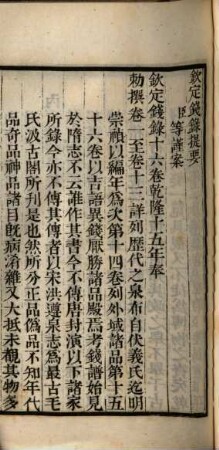 欽定錢錄提要
臣等謹案
欽定錢錄十六卷乾隆十五年奉
勅撰卷一至卷十三詳列歷代之泉布自伏羲氏迄明
崇禎以編年爲次第十四卷列外域諸品第十五
十六卷以吉語異錢厭勝諸品殿焉考錢譜始見
於隋志不云誰作其書今不傳唐封演以下諸家
所錄今亦不傳其傳者以宋洪遵泉志爲最古毛
氏汲古閣所刊是也然所分正品僞品不知年代
品奇品神品諸目既病淆雜又大抵未覩其物多